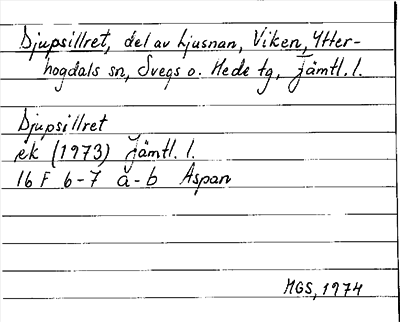 Djupsillret, del av Ljusnan, Viken, Ytter-
hogdals sn, Svegs o. Hede tg, Jämtl. l.
Djupsillret
ek (1973) Jämtl. l.
16 F 6-7 a-b Aspan
MGS, 1974